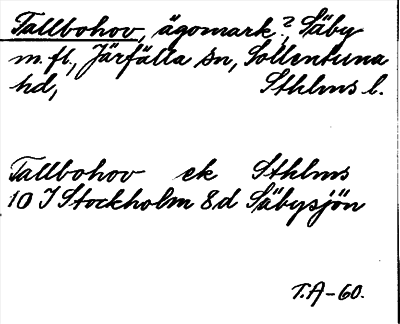 Tallbohov, ägomark?, Säby
m.fl., Järfälla sn, Sollentuna
hd, Sthlms l.
Tallbohov ek Sthlms
10 I Stockholm 8d Säbysjön
T.A-60.